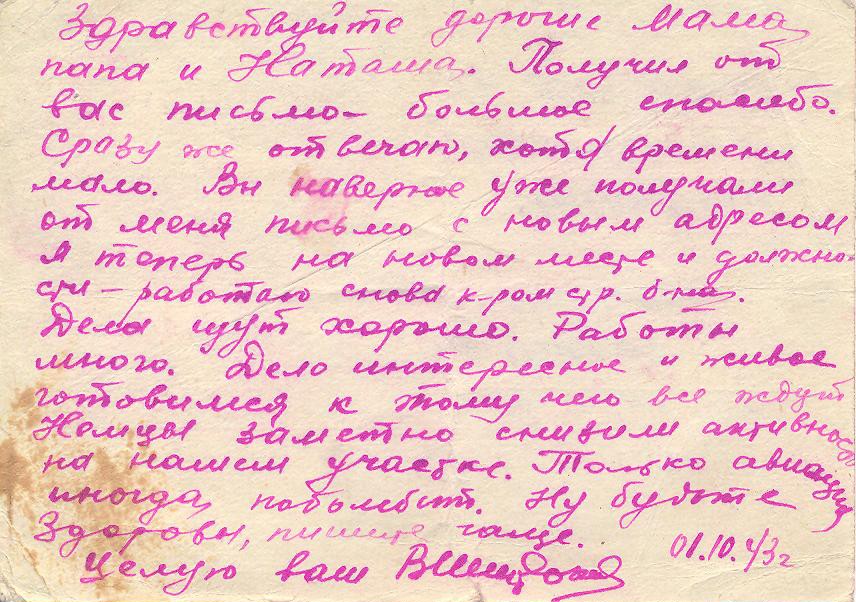 Здравствуйте дорогие Мама,
папа и Наташа. Получил от
вас письмо – большое спасибо.
Сразу же отвечаю, хотя времени
мало. Вы наверное уже получали
от меня письмо с новым адресом
Я теперь на новом месте и должно-
сти – работаю снова к-ром стр. б-на.
Дела идут хорошо. Работы
много. Дело интересное и живое
готовимся к тому чего все ждут
Немцы заметно снизили активность
на нашем участке. Только авиация
иногда побомбит. Ну будьте
Здоровы, пишите чаще.
Целую ваш
01.10.43г